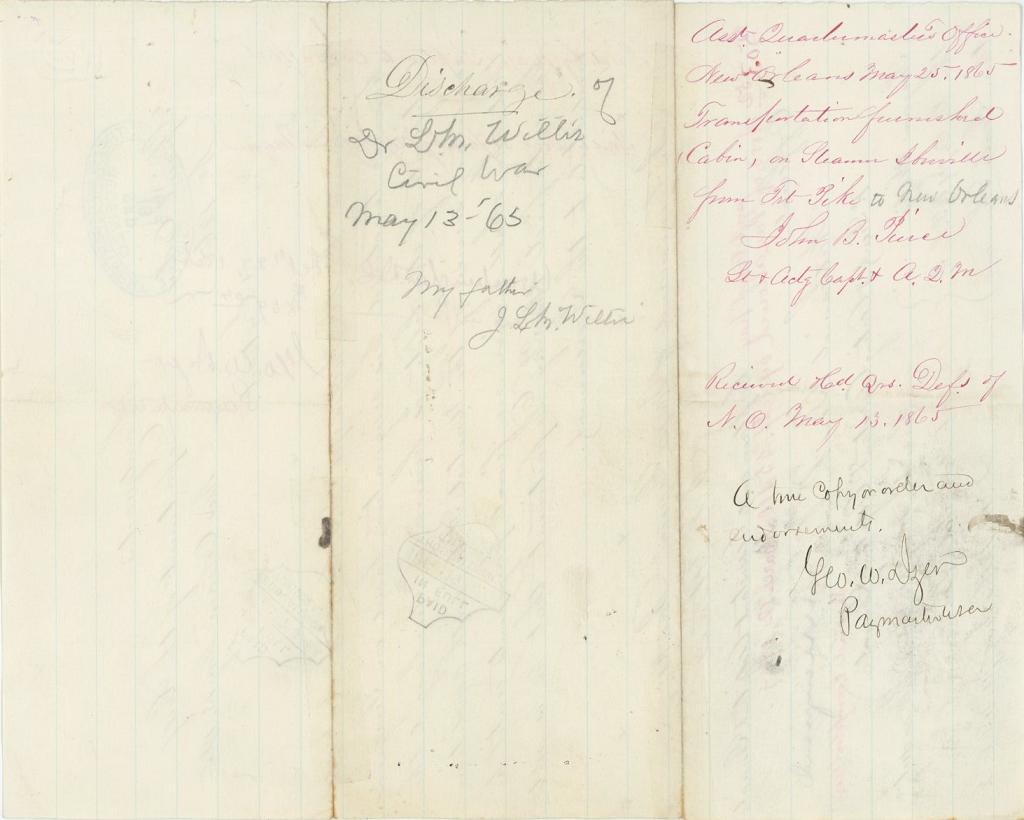 Discharge of
Dr L. M. Willis
Civil War
May 13 - '65
My father
J L. M. Willis
IN FULL
PAID
Asst Quartermaster's Office
New Orleans May 25. 1865
Transportation furnished
Cabin, on Steamer
from Fort Pike to New Orleans
John B. Pierce
Lt & Actg Capt. & A. Q. M
Received Hd Qrs. Defs of
N. O. May 13. 1865
A true copy of order and
endorsements.
Geo. W. Dyer
Paymaster USA